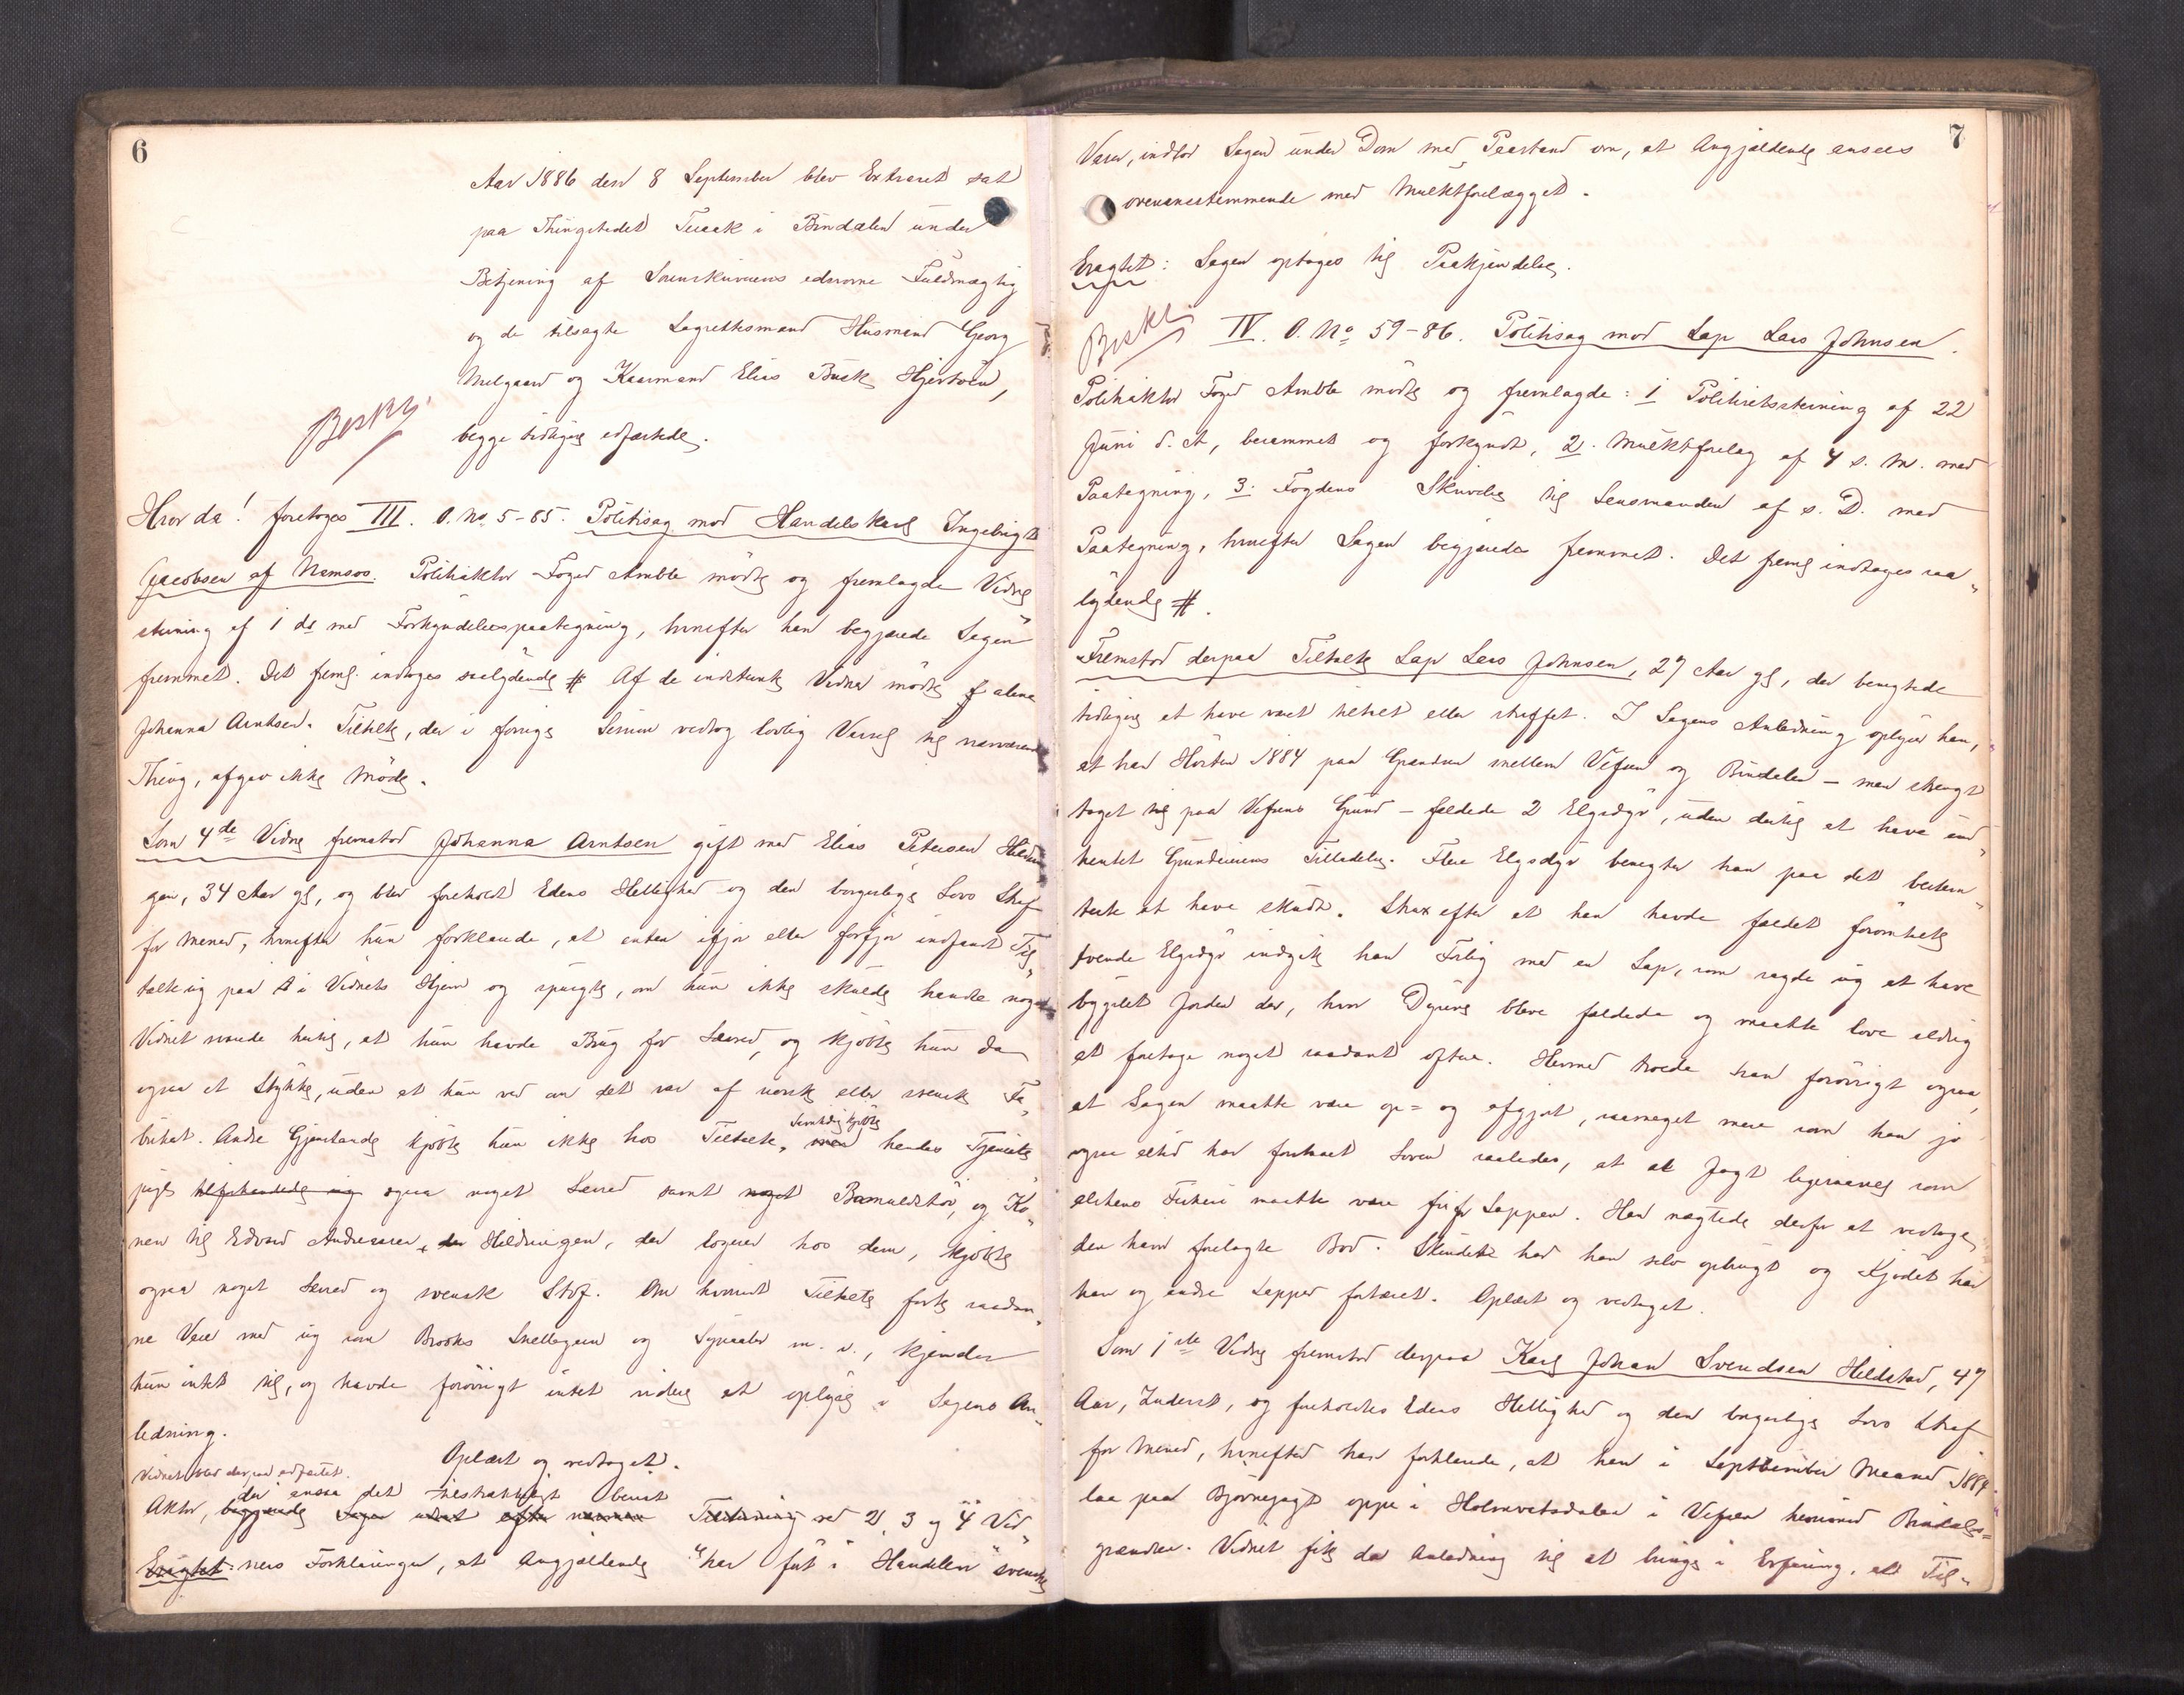 6
Aar 1886 den 8 September blev Extraret sat
paa Thingstedet Terak i Bindalen under
Betjening af Sorenskriverens edsvorne Fuldmægtig
og de tilsagte Lagrettesmænd Husmand Georg
Melgaard og Kaarmand Elias Busk Hjortöen,
begge tidligere edfæstede.
Beskr.
Hvor da! foretoges III. O. No 5-85. Politisag mod Handelskarl Ingebrigt
Jacobsen af Namsos. Politiaktor Foged Amble mödte og fremlagde Vidne
stevning af 1 ds med Forkyndelsespaategning, hvorefter han begjærede Sagen
fremmet. Det freml. indtages saalydende # Af de indstevnte Vidner mödte alene
Johanna Arntsen. Tiltalte, der i forrige Session vedtog lovlig Varsel til nærværende
Thing, afgav ikke Möde.
Som 4de Vidne fremstod Johanna Arntsen gift med Elias Petersen Hildrin
gen, 34 Aar gl, og blev foreholdt Edens Hellighed og den borgerlige Lovs Straf
for Mened, hvorefter hun forklarede, at enten ifjor eller forfjor indfandt Til„
talte sig paa i Vidnets Hjem og spurgte, om hun ikke skulde handle noget
Vidnet svarede hertil, at hun havde Brug for Lærred, og kjöbte hun da
ogsaa et Stykke, uden at hun ved om det var af norsk eller svensk Fa„
brikat. Andre Gjenstande kjöbte hun ikke hos Tiltalte, men hendes Tjeneste
Samtidig kjöbte
pige tilforhandlede sig ogsaa noget Lærred samt noget Bomuldstöi, og Ko„
nen til Edvard Andreassen, der Hildringen, der logerer hos dem, kjöbte
ogsaa noget Lærred og svensk Stof. Om hvorvidt Tiltalte förte saadan„
ne Varer med sig som Brooks Snellegarn og Synaaler m. v., kjender
hun intet til, og havde forövrigt intet videre at oplyse i Sagens An„
ledning.
Oplæst og vedtaget.
Vidnet blev derpaa edfæstet.
der ansaa det tilstrækkeligt bevist
Aktor, begjærede Sagen udsat efter Stevning ved 2, 3 og 4 Vid„
Eragtet: ners Forklaringer, at Angjældende "har fört i Handelen" svenske
7
Varer, indlod Sagen under Dom med Paastand om, at Angjældende ansees
overensstemmende med Mulktforelægget.
Eragtet: Sagen optages til Paakjendelse.
Beskr.
IV. O. No 59-86. Politisag mod Lap Lars Johnsen.
Politiaktor Foged Amble mödte og fremlagde: 1 Politiretsstevning af 22
Juni d. A, berammet og forkyndt, 2. Mulktforelæg af 4 s. M. med
Paategning, 3. Fogdens Skrivelse til Lensmanden af s. D. med
Paategning, hvorefter Sagen begjæredes fremmet. Det freml indtages saa„
lydende #.
Fremstod derpaa Tiltalte Lap Lars Johnsen, 27 Aar gl, der benegtede
tidligere at have været tiltalt eller straffet. I Sagens Anledning oplyser han,
at han Hösten 1884 paa Grændsen mellem Vefsen og Bindalen – men strengt
taget til paa Vefsens Grund – fældede 2 Elgsdyr, uden dertil at have ind„
hentet Grundeierens Tilladelse. Flere Elgsdyr benegter han paa det bestem„
teste at have skudt. Strax efter at han havde fældet föromtalte
tvende Elgsdyr indgik han Forlig med en Lap, som sagde sig at have
bygslet Jorden der, hvor Dyrene bleve fældede og maatte love aldrig
at foretage noget saadant oftere. Hermed troede han forövrigt ogsaa,
at Sagen maatte være op= og afgjort, saameget mere som han jo
ogsaa altid har forstaaet Loven saaledes, at al Jagt ligesaavel som
elvtens Fiskeri maatte være fri for Lappen. Han nægtede derfor at vedtage
den ham forelagte Bod. Skindet har han selv opbrugt og Kjödet har
han og andre Lapper fortæret. Oplæst og vedtaget.
Som 1ste Vidne fremstod derpaa Karl Johan Svendsen Hildstad, 47
Aar, Inderst, og foreholdtes Edens Hellighed og den borgerlige Lovs Straf
for Mened, hvorefter han forklarede, at han i September Maaned 1884
laa paa Björnejagt oppe i Holmvatsdalen i Vefsen henimod Bindals=
grændsen. Vidnet fik da Anledning til at bringe i Erfaring, at Til„